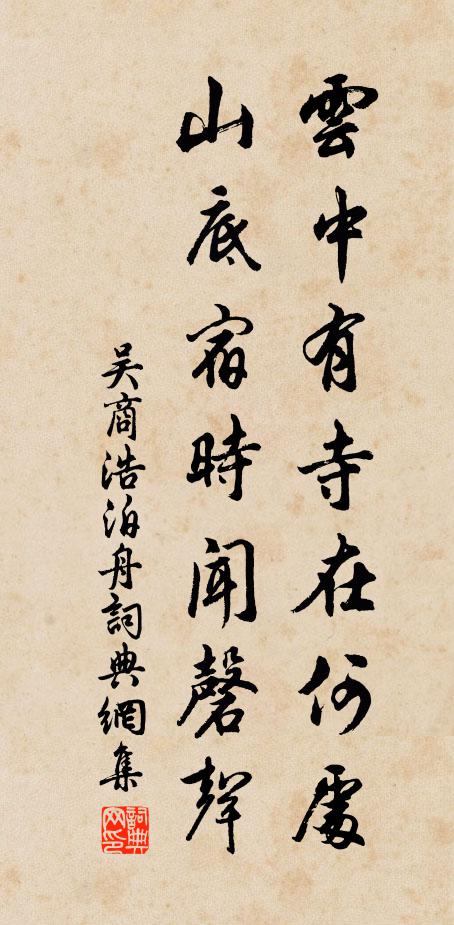 雲中有寺在何處
山底宿時聞磬聲
吳商浩泊舟詞典網集
詞典網印